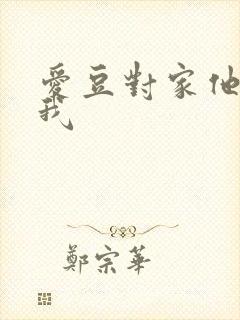 愛豆對家他
我
鄭宗華